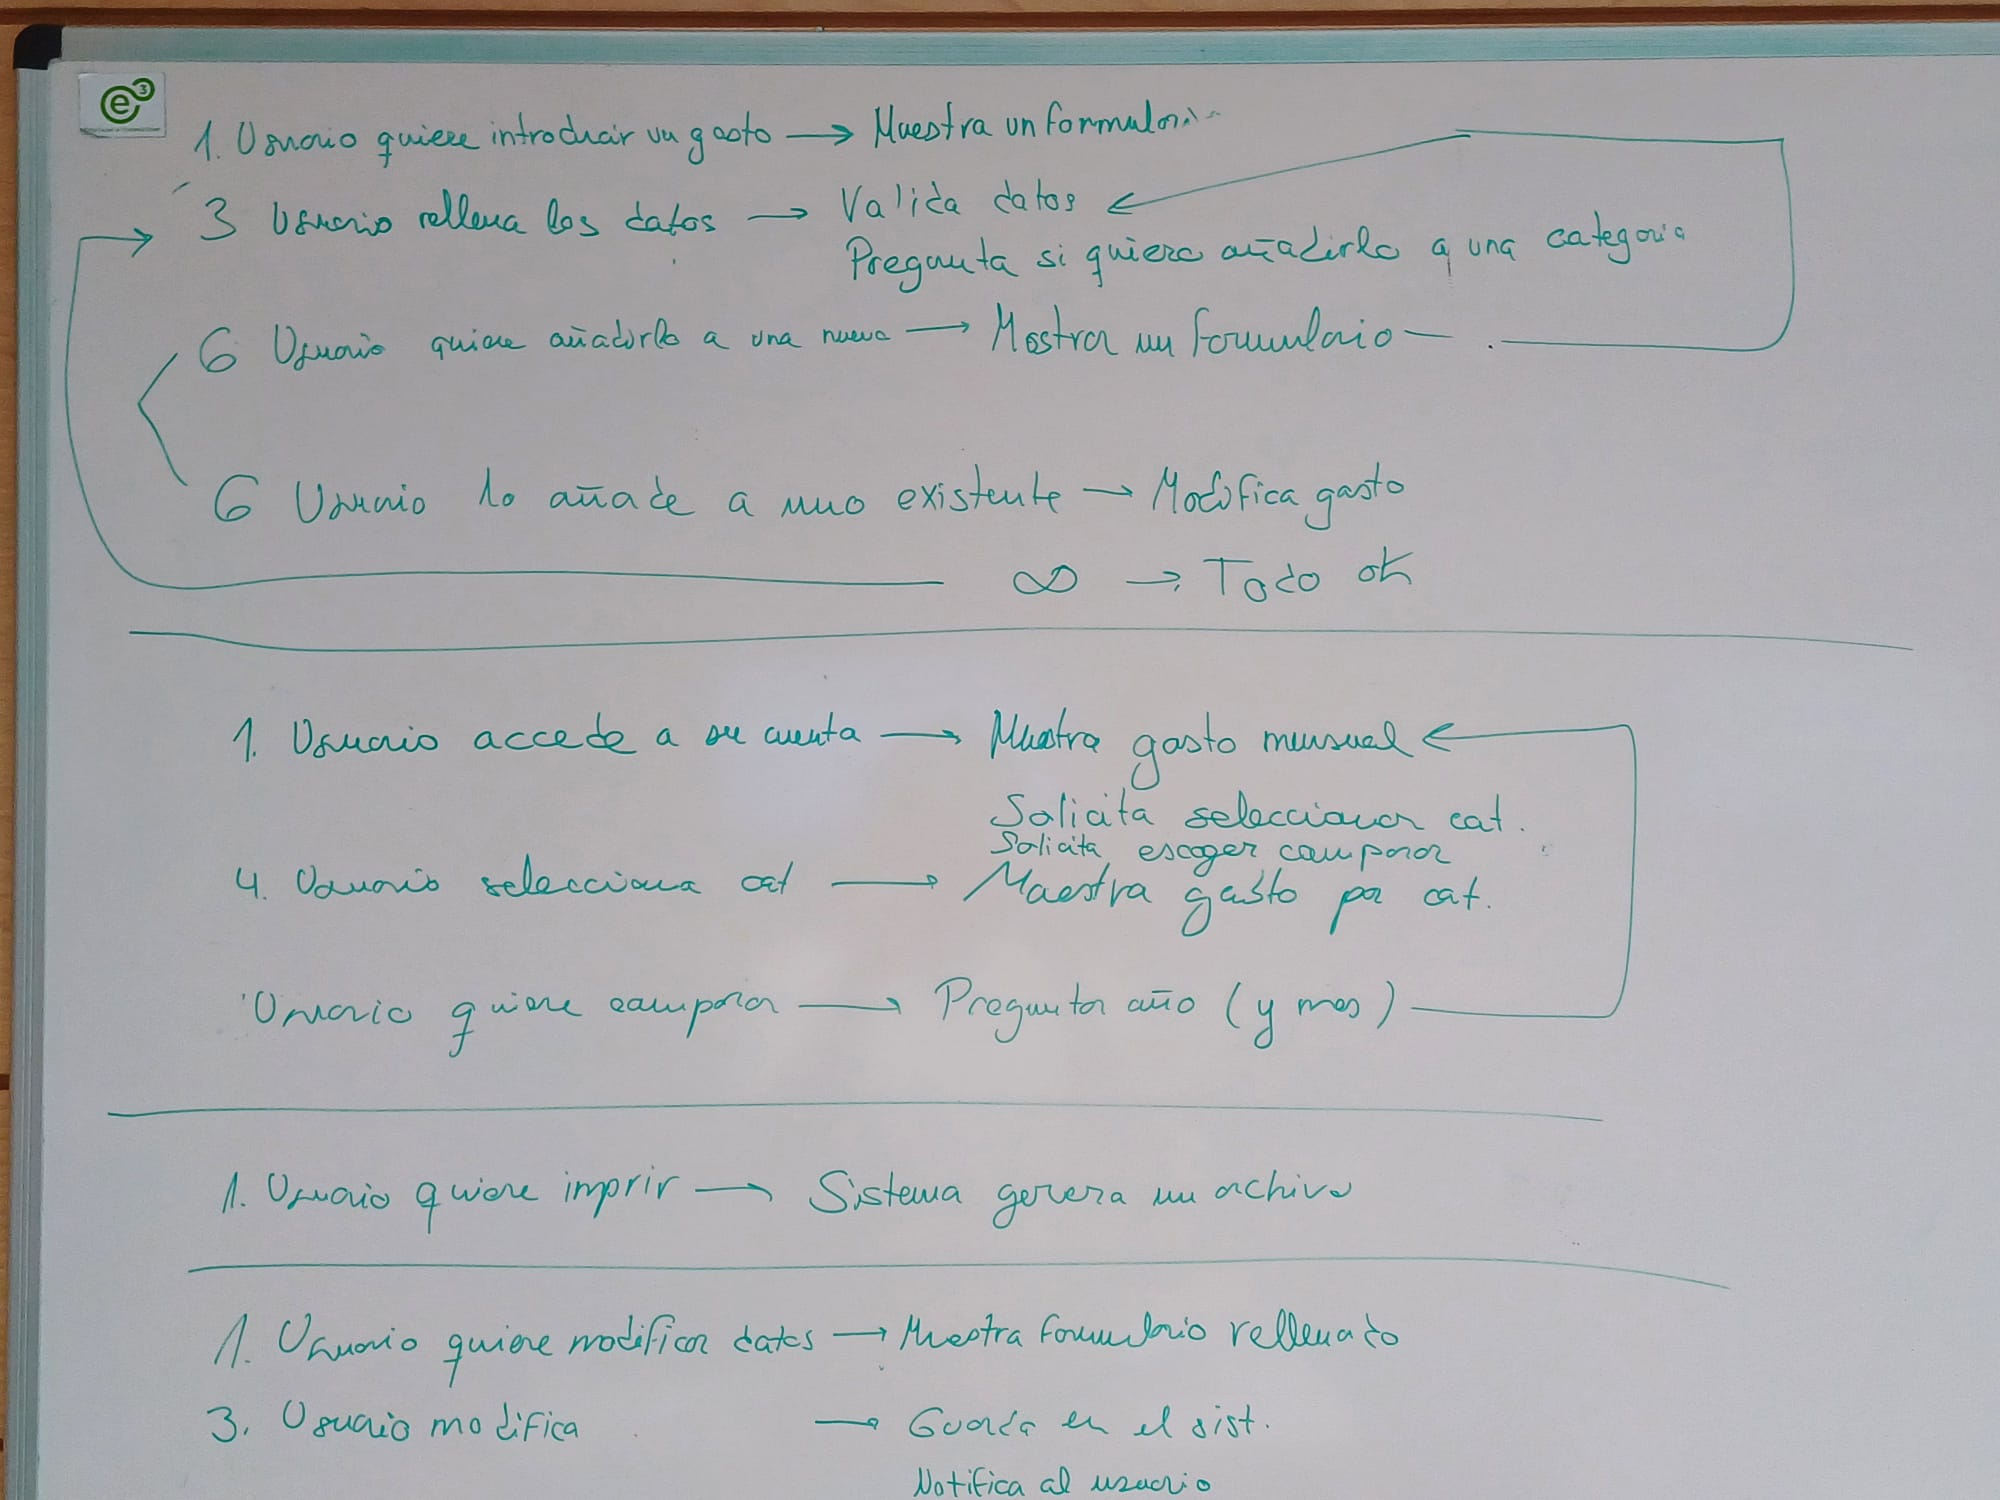 e3
1. Usuario quiere introducir un gasto → Muestra un formulario
3 Usuario rellena los datos → Valida datos
Pregunta si quiere añadirlo a una categoria
6 Usuario quiere añadirlo a una nueva → Mostrar un formulario
6 Usuario lo añade a uno existente → Modifica gasto
∞ → Todo ok
1. Usuario accede a su cuenta → Muestra gasto mensual
Solicita seleccionar cat.
Solicita escoger comparar
4. Usuario selecciona cat → Muestra gasto por cat.
Usuario quiere comparar → Preguntar año (y mes)
1. Usuario quiere imprir → Sistema genera un archivo
1. Usuario quiere modificar datos → Muestra formulario rellenado
3. Usuario modifica → Guarda en el sist.
Notifica al usuario